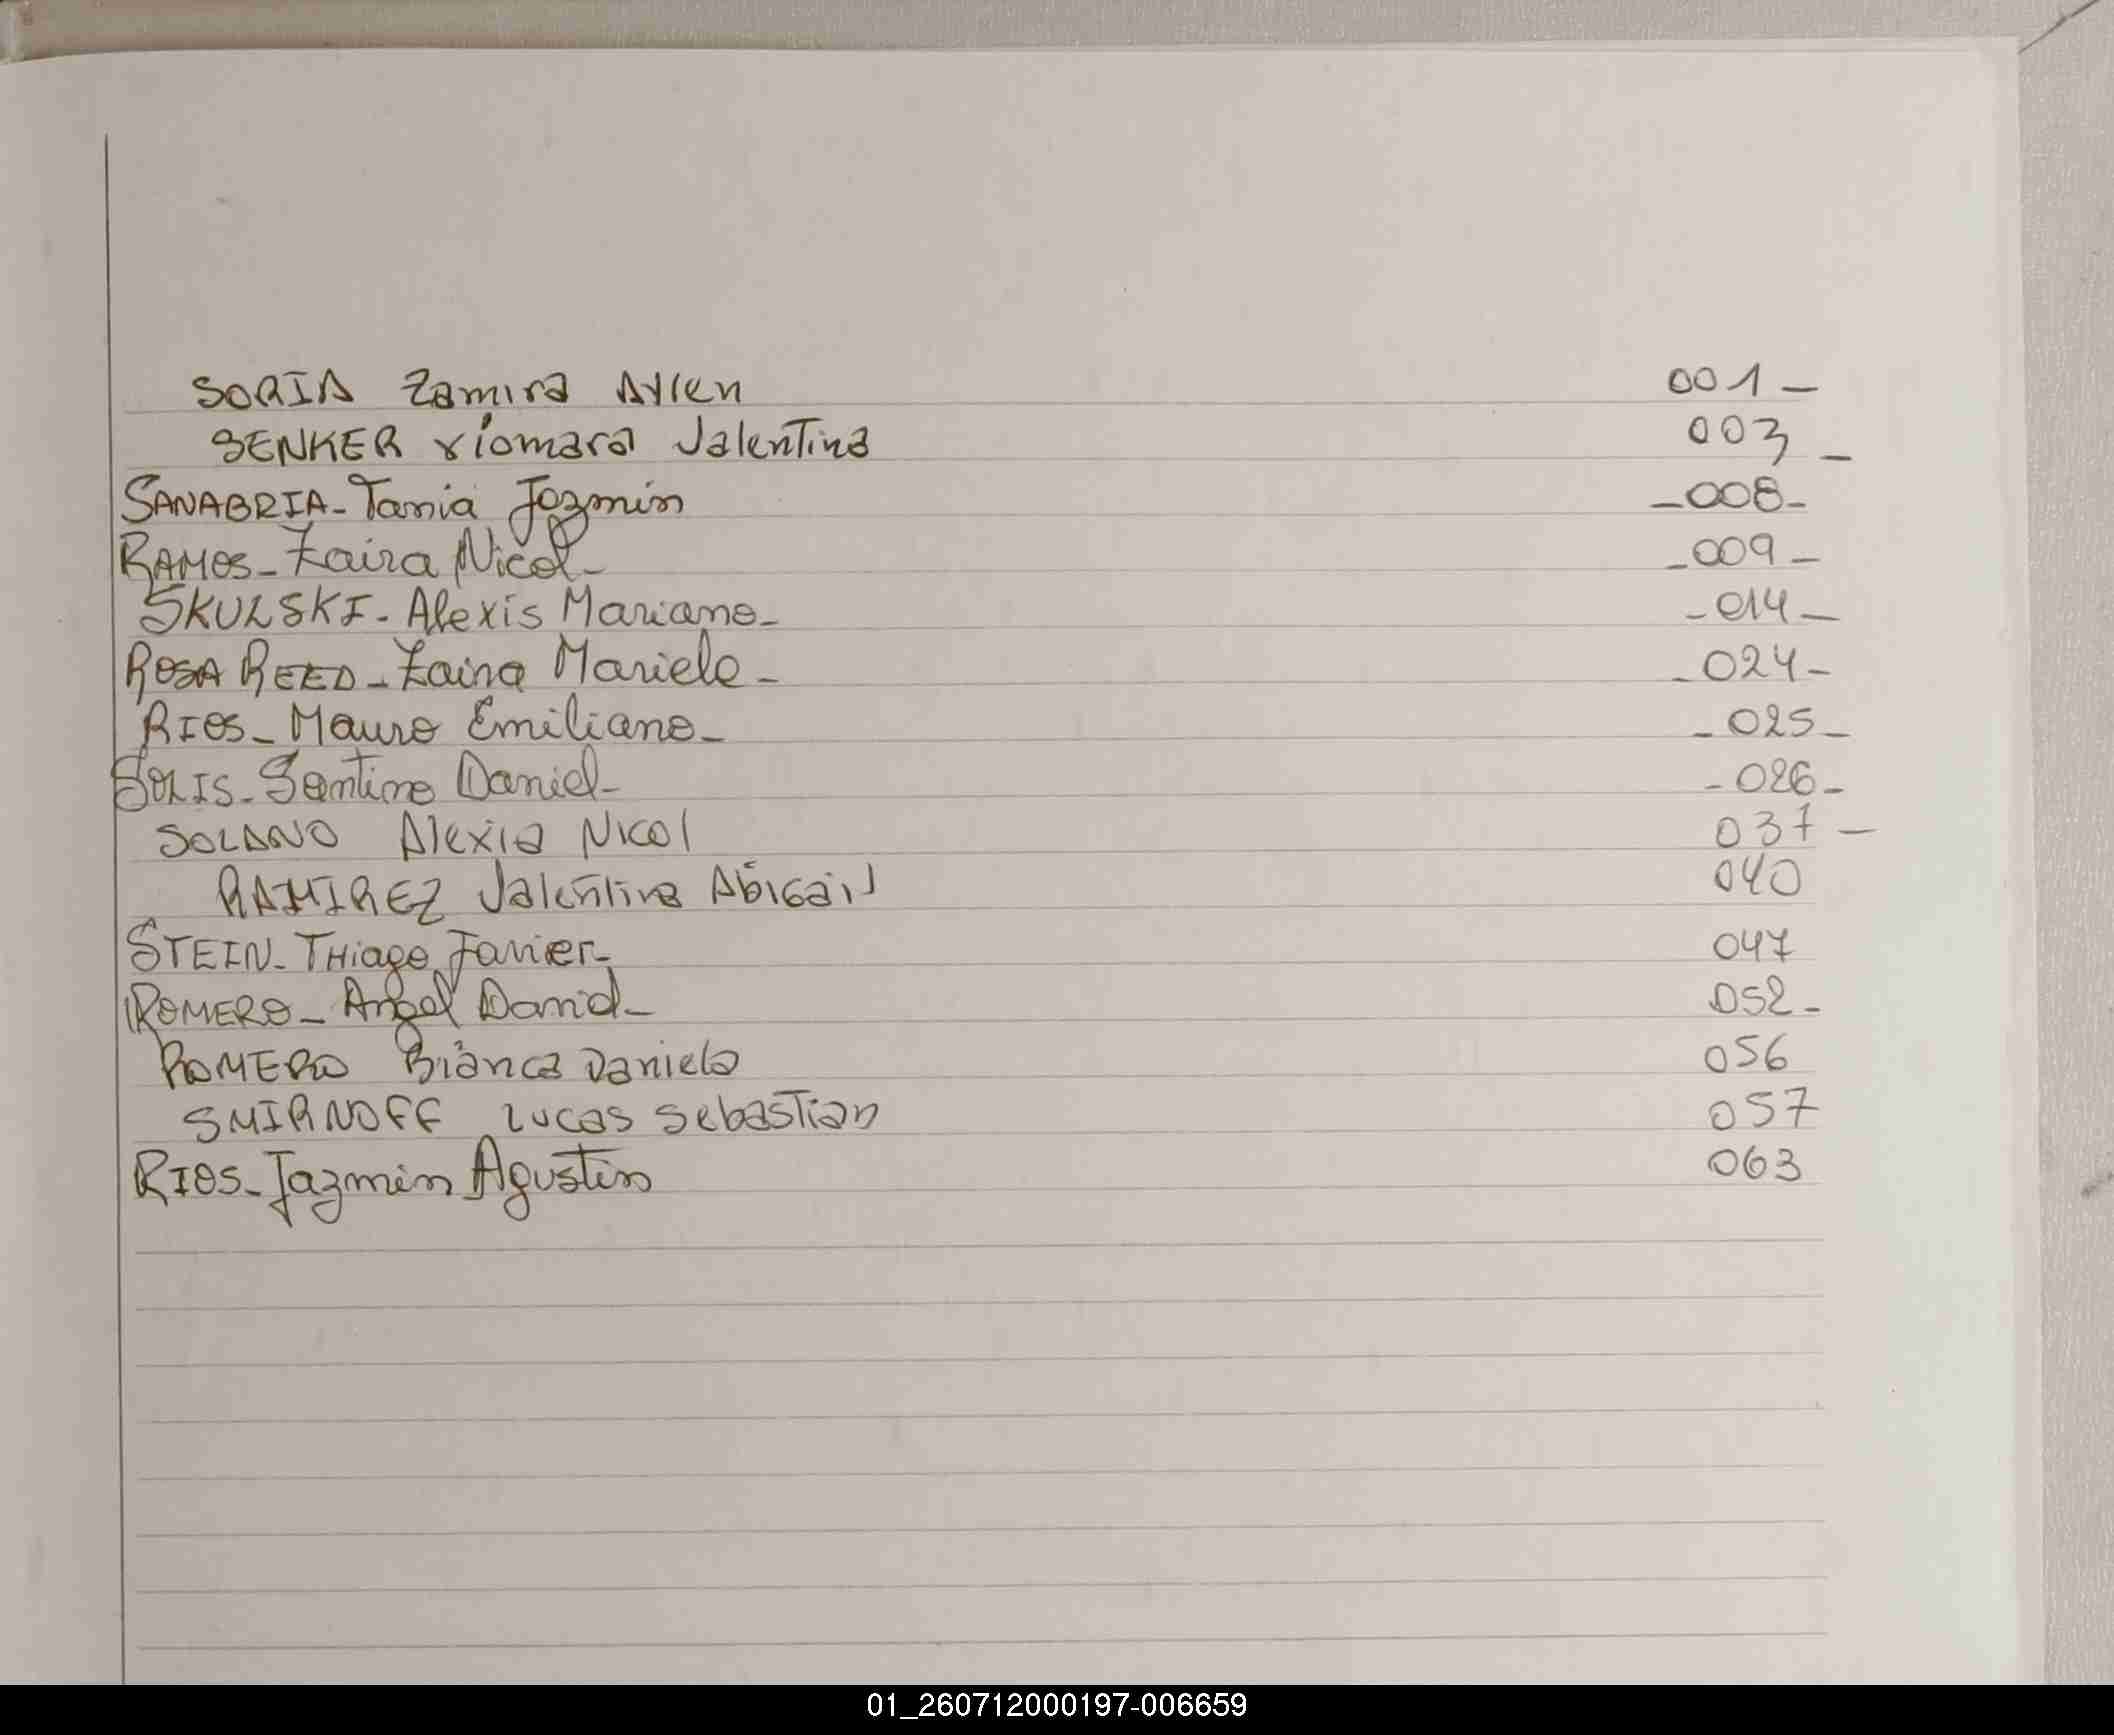 SORIA Zamira Aylen 001 -
SENKER xiomara Valentina 003 -
SANABRIA - Tania Jazmin - 008 -
RAMOS - Zaira Nicol - - 009 -
SKULSKI - Alexis Mariano - - 014 -
ROSA REED - Zaira Mariele - - 024 -
RIOS - Mauro Emiliano - - 025 -
SOLIS - Santino Daniel - - 026 -
SOLANO Alexia Nicol 037 -
RAMIREZ Valentina Abigail 040
STEIN - THiago Javier - 047
ROMERO - Angel Daniel - 052 -
ROMERO Bianca Daniela 056
SMIRNOFF Lucas Sebastian 057
RIOS - Jazmin Agustin 063
01_260712000197-006659